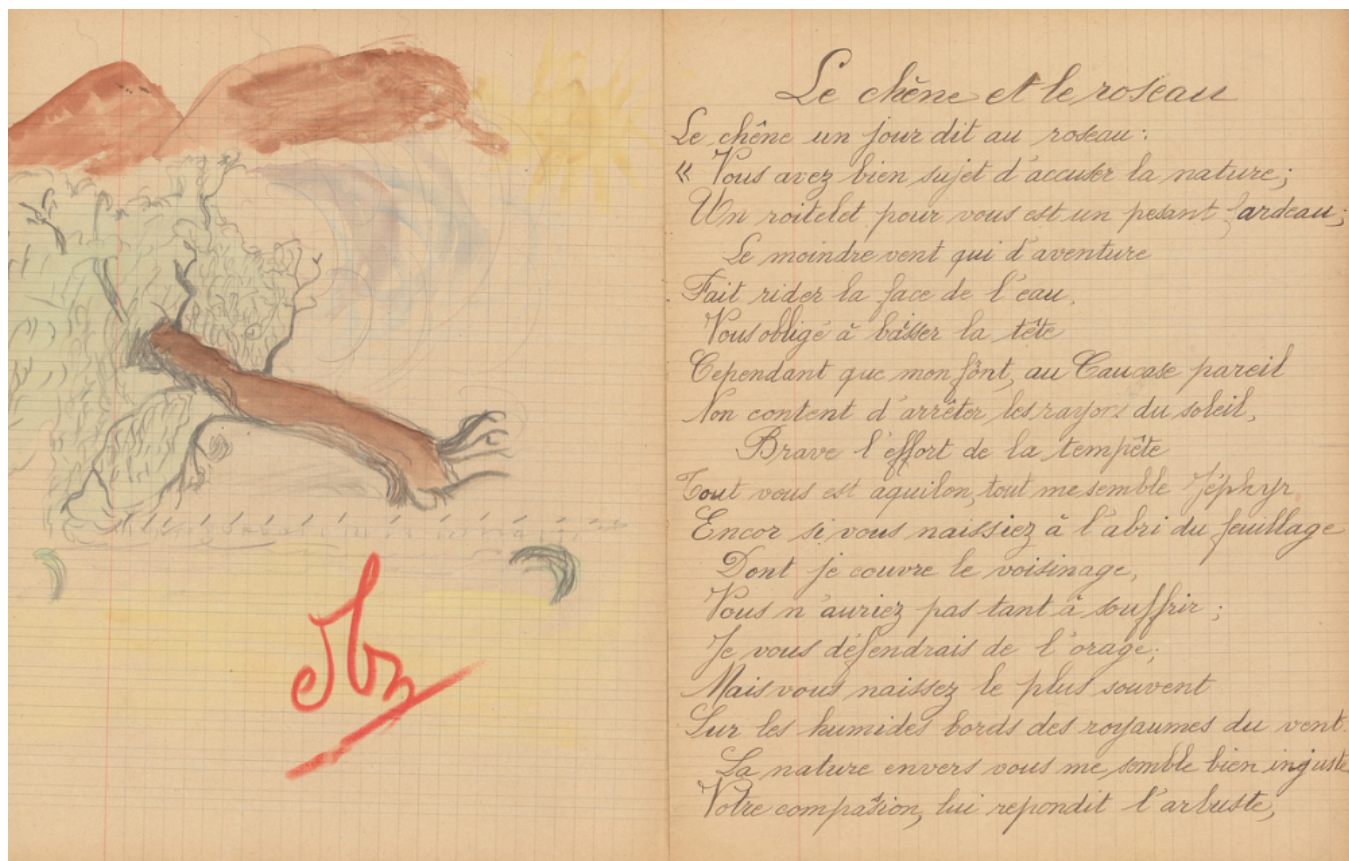 Le chêne et le roseau
Le chêne un jour dit au roseau :
« Vous avez bien sujet d'accuser la nature ;
Un roitelet pour vous est un pesant fardeau ;
Le moindre vent qui d'aventure
Fait rider la face de l'eau,
Vous obligé à baîsser la tête
Cependant que mon fônt, au Caucase pareil
Non content d'arrêter les rayons du soleil,
Brave l'effort de la tempête
Tout vous est aquilon, tout me semble zéphyr
Encor si vous naissiez à l'abri du feuillage
Dont je couvre le voisinage,
Vous n'auriez pas tant à souffrir ;
Je vous défendrais de l'orage ;
Mais vous naissez le plus souvent
Sur les humides bords des royaumes du vent.
La nature envers vous me semble bien injuste
Votre compassion, lui repondit l'arbuste,